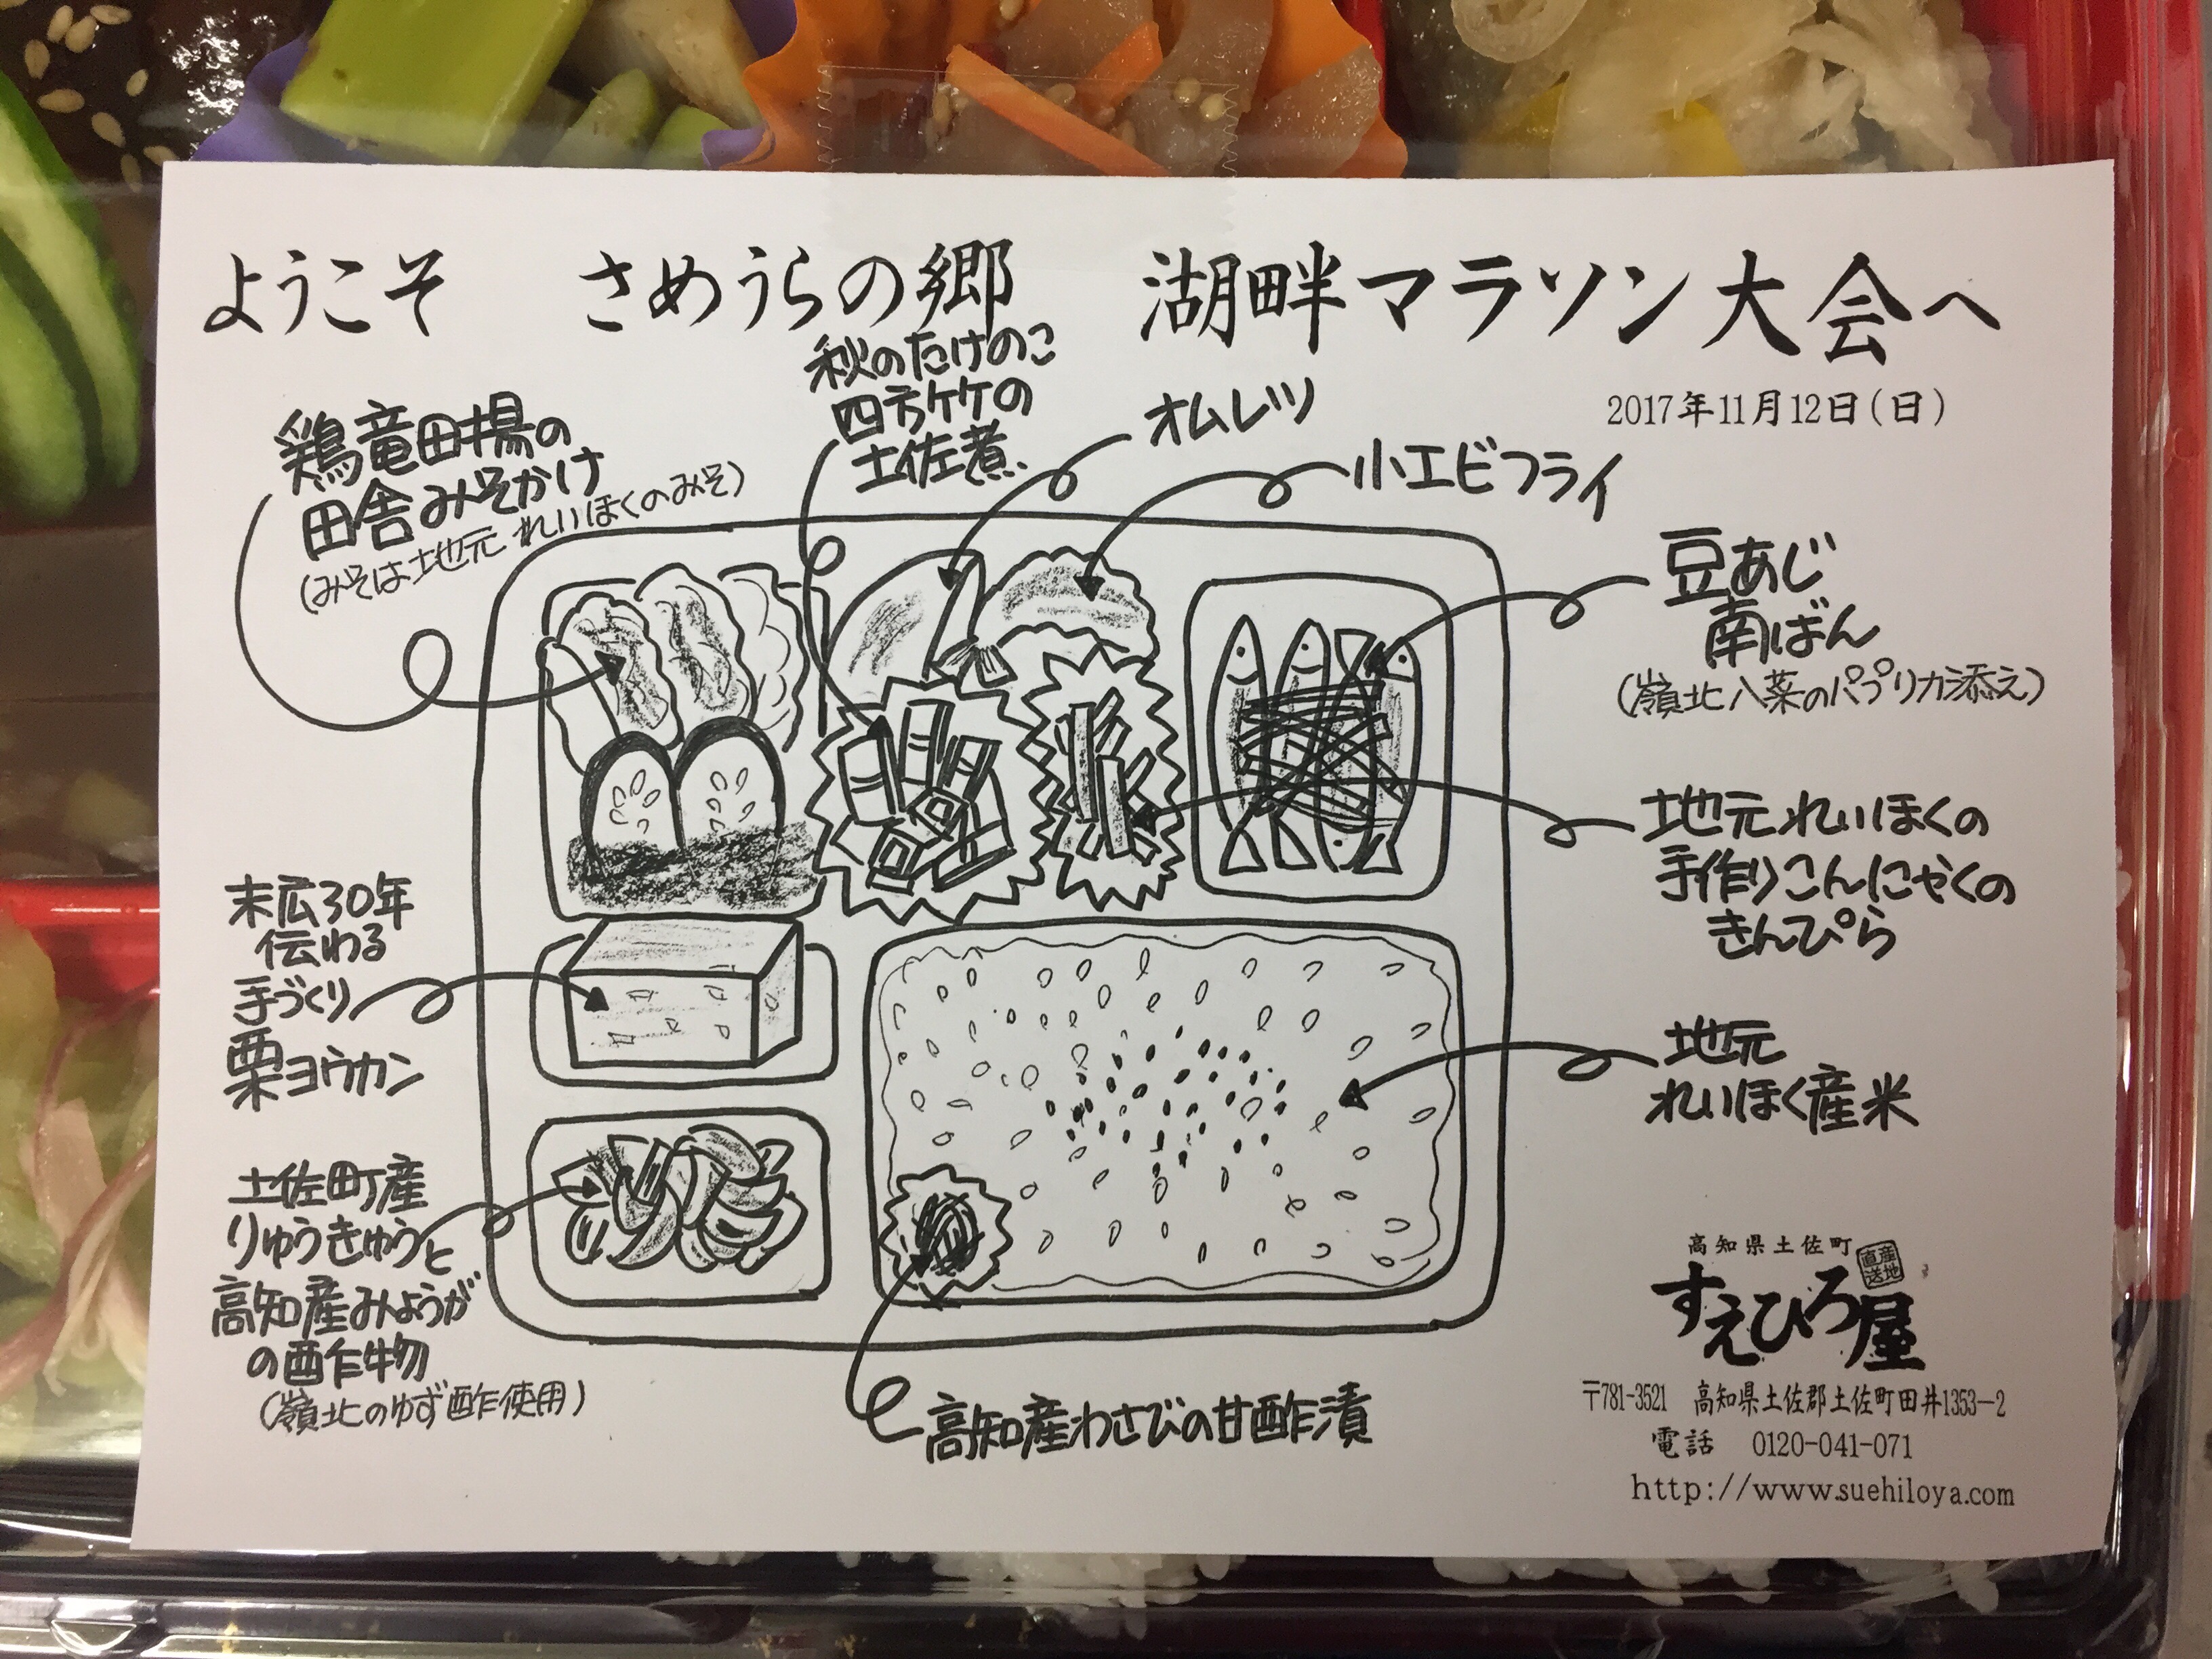 ようこそ　さめうらの郷　湖畔マラソン大会へ
2017年11月12日(日)
鶏竜田揚の
田舎みそかけ
(みそは地元れいほくのみそ)
秋のたけのこ
四方竹の
土佐煮
オムレツ
小エビフライ
豆あじ
南ばん
(嶺北八菜のパプリカ添え)
地元れいほくの
手作りこんにゃくの
きんぴら
地元
れいほく産米
末広30年
伝わる
手づくり
栗ヨウカン
土佐町産
りゅうきゅうと
高知産みょうが
の酢作物
(嶺北のゆず酢使用)
高知産わさびの甘酢漬
高知県土佐町
産地直送
すえひろ屋
〒781-3521　高知県土佐郡土佐町田井1353-2
電話　0120-041-071
http://www.suehiloya.com